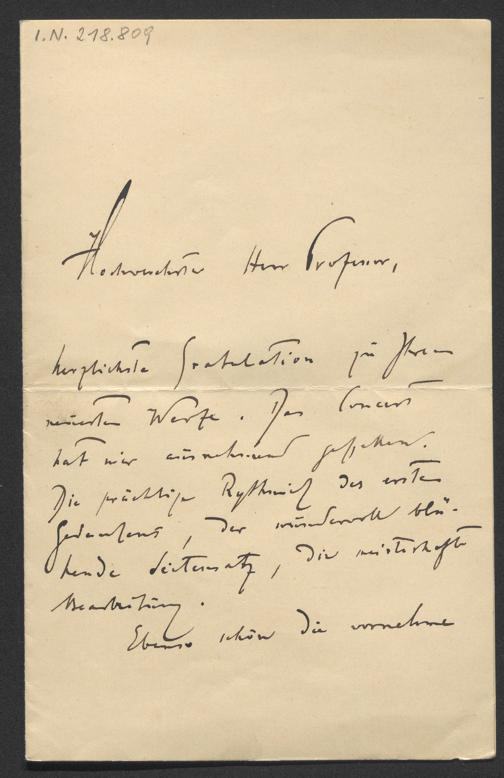 I.N. 218.809
Hochverehrter Herr Professor,
herzlichste Gratulation zu Ihrem
neuesten Werke. Das Concert
hat mir ausnehmend gefallen.
Die prächtige Rythmik des ersten
Gedankens, der wundervoll blü-
hende Seitensatz, die meisterhafte
Bearbeitung.
Ebenso schön die vornehme